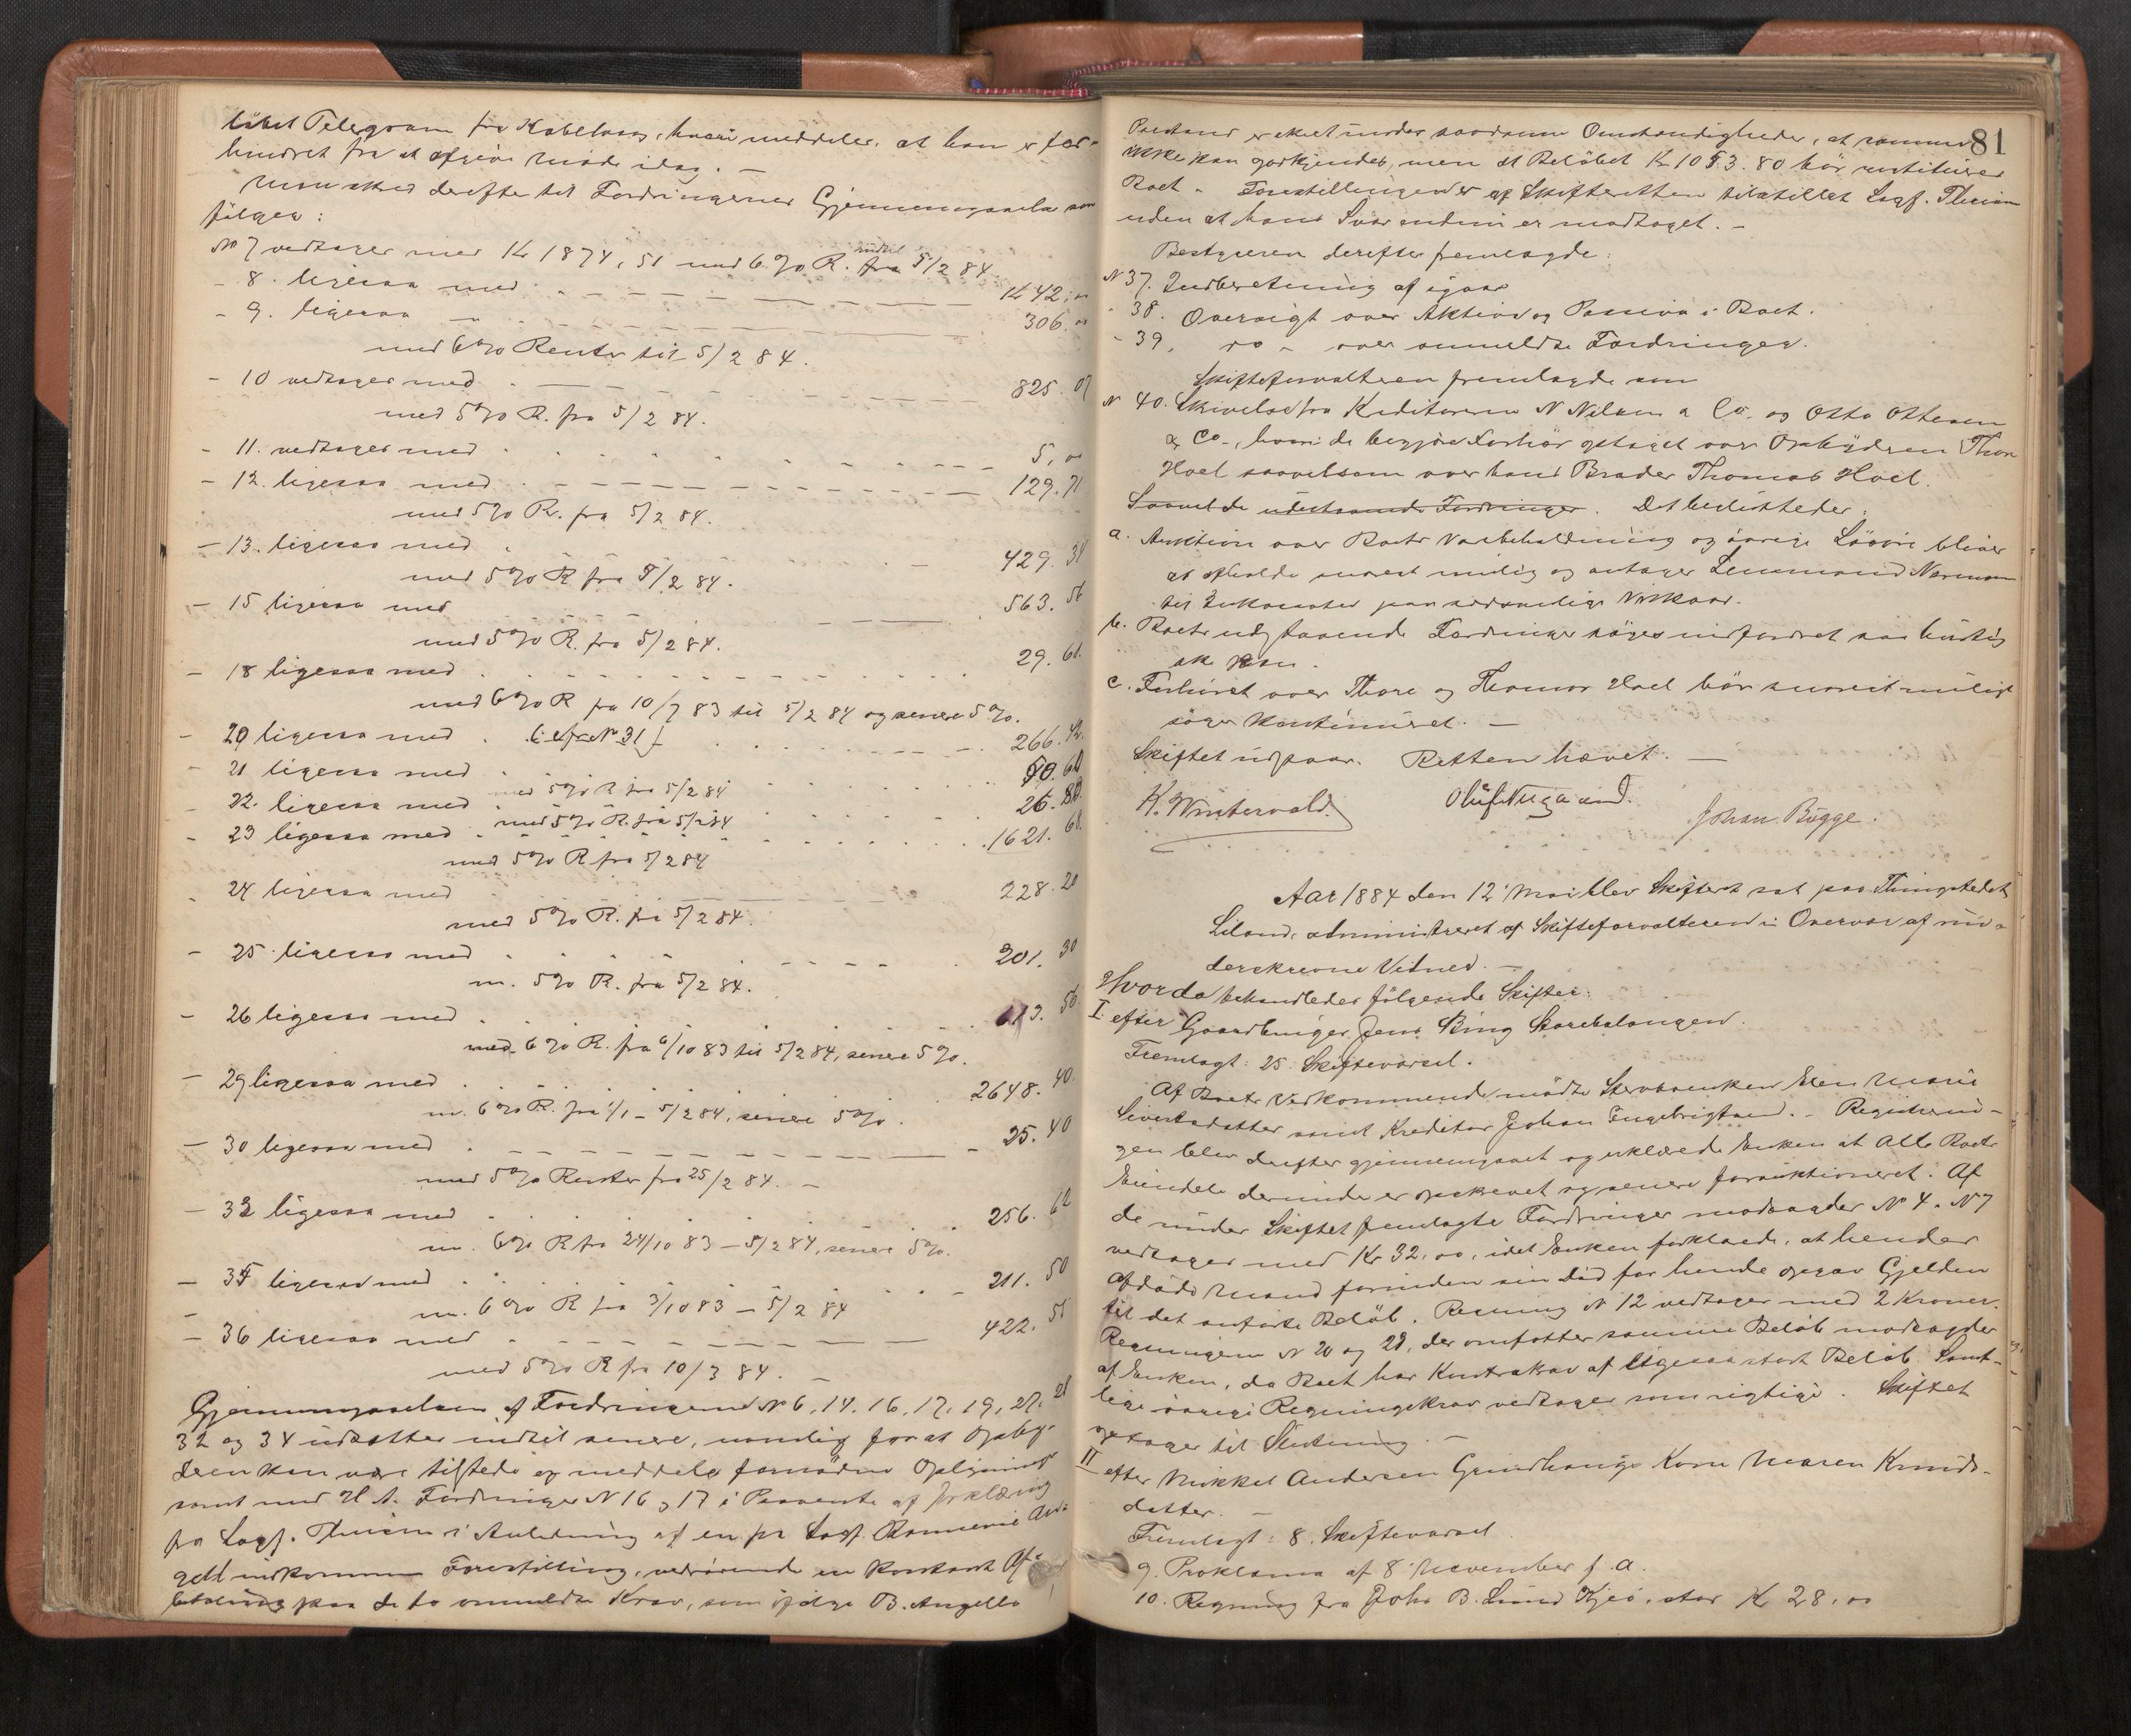 löbet Telegram fra Kabelvaag, hvori meddeles, at han er for-
hindret fra at afgive Møde idag. —
Man skred derefter til Fordringernes Gjennemgaaelse som
følger:
No 7 vedtages med Kr 1874,51 med 6% R. indtil 5/2 84.
- 8. ligesaa med Kr 42,00
- 9. ligesaa — 306.00
med 6% Renter til 5/2 84.
- 10 vedtages med 825.07
med 5% R. fra 5/2 84.
- 11. vedtages med 5,00
- 12. ligesaa med 129.71
med 5% R. fra 5/2 84.
- 13. ligesaa med 429.34
med 5% R fra 5/2 84.
- 15 ligesaa med 563.56
med 5% R. fra 5/2 84.
- 18 ligesaa med 29.61
med 6% R fra 10/7 83 til 5/2 84 og senere 5%.
- 20 ligesaa med (cfr No 31) 266.42
- 21 ligesaa med 50.60
med 5% R fra 5/2 84
- 22. ligesaa med 26.80
med 5% R. fra 5/2 84
- 23 ligesaa med 1621.68
med 5% R fra 5/2 84
- 24 ligesaa med 228.20
med 5% R. fra 5/2 84.
- 25 ligesaa med 201.30
m. 5% R. fra 5/2 84.
- 26 ligesaa med 613.56
med 6% R. fra 6/10 83 til 5/2 84, senere 5%.
- 29 ligesaa med 2648.40
m. 6% R. fra 1/1 - 5/2 84, senere 5%.
- 30 ligesaa med 25.40
med 5% Renter fra 25/2 84. —
- 33 ligesaa med 256.62
m. 6% R fra 24/10 83 - 5/2 84, senere 5%.
- 35 ligesaa med 211.50
m. 6% R fra 3/10 83 - 5/2 84
- 36 ligesaa med 422.55
med 5% R fra 10/3 84. —
Gjennemgaaelsen af Fordringerne No 6, 14. 16, 17, 19, 27, 28
32 og 34 udsættes indtil senere, nemlig for at Opby-
deren kan være tilstede og meddele fornødne Oplysninger
samt med H. t. Fordringer No 16 og 17 i Paavente af Erklæring
fra Sagf. i Anledning af en fra Sagf.
indkommen Forestilling, vedrørende en kontant Af-
betaling paa de to anmeldte Krav, som ifølge B. Angells
81
Paastand er skeet under saadanne Omstændigheder, at samme
ikke kan godkjendes, men at Beløbet Kr 1053.80 bör restitueres
Boet. Forestillingen er af Skifteretten tilstillet Sagf.
uden at hans Svar endnu er modtaget. —
Bestyreren derefter fremlagde:
No 37. Indberetning af igaar
- 38. Oversigt over Aktiva og Passiva i Boet.
- 39. do - over anmeldte Fordringer.
Skifteforvalteren fremlagde som
No 40. Skrivelse fra Kreditorerne N Nilsen & Co. og Otto Ottesen
& Co., hvori de begjære Forhör optaget over Opbyderen Thore
Hoel saavelsom over hans Broder Thomas Hoel.
Samtl. de udestaaende Fordringer. Det besluttedes:
a. Auktion over Boets Varebeholdning og övrige Lösöre bliver
at afholde snarest mulig og antages Lensmand Normann
til Inkassator paa sædvanlige Vilkaar.
b. Boets udestaaende Fordringer söges indfordret saa hurtig
ske kan.
c. Forhöret over Thore og Thomas Hoel bör snarest muligt
söges kontinueret. —
Skiftet udgaar. Retten hævet. —
K. Wintervold. Oluf Nygaard. Johan Bugge.
Aar 1884 den 12 Mai blev Skifteret sat paa Thingstedet
Liland, administreret af Skifteforvalteren i Overvær af un-
derskrevne Vidner. —
Hvorda behandledes følgende Skifter:
I efter Gaardbruger Jens Bing
Fremlagt: 25. Skiftevarsel.
Af Boets Vedkommende mødte Stervboenken Elen Marie
Sivertsdatter samt Kreditor Johan Engebrigtsen. - Registrerin-
gen blev derefter gjennemgaaet og erklærede Enken at Alle Boets
Eiendele derunder er opskrevet og senere forauktioneret. Af
de under Skiftet fremlagte Fordringer modsagdes No 4. No 7
vedtages med Kr 32,00, idet Enken forklarede, at hendes
afdøde Mand forinden sin Död for hende opgav Gjelden
til det anførte Beløb. Regning No 12 vedtages med 2 Kroner.
Regningerne No 20 og 21, der omfatter samme Beløb modsagdes
af Enken, da Boet har Kontrakrav af ligesaa stort Beløb. Samt-
lige övrige Regningskrav vedtages som rigtige. Skiftet
optages til Slutning. —
II efter Mikkel Andersen Grindhaugs Kone Maren Knuds-
datter. —
Fremlagt: 8. Skiftevarsel
9. Proklama af 8 November f. A.
10. Regning fra Johs B. Lund Kjeö, stor Kr 28,00